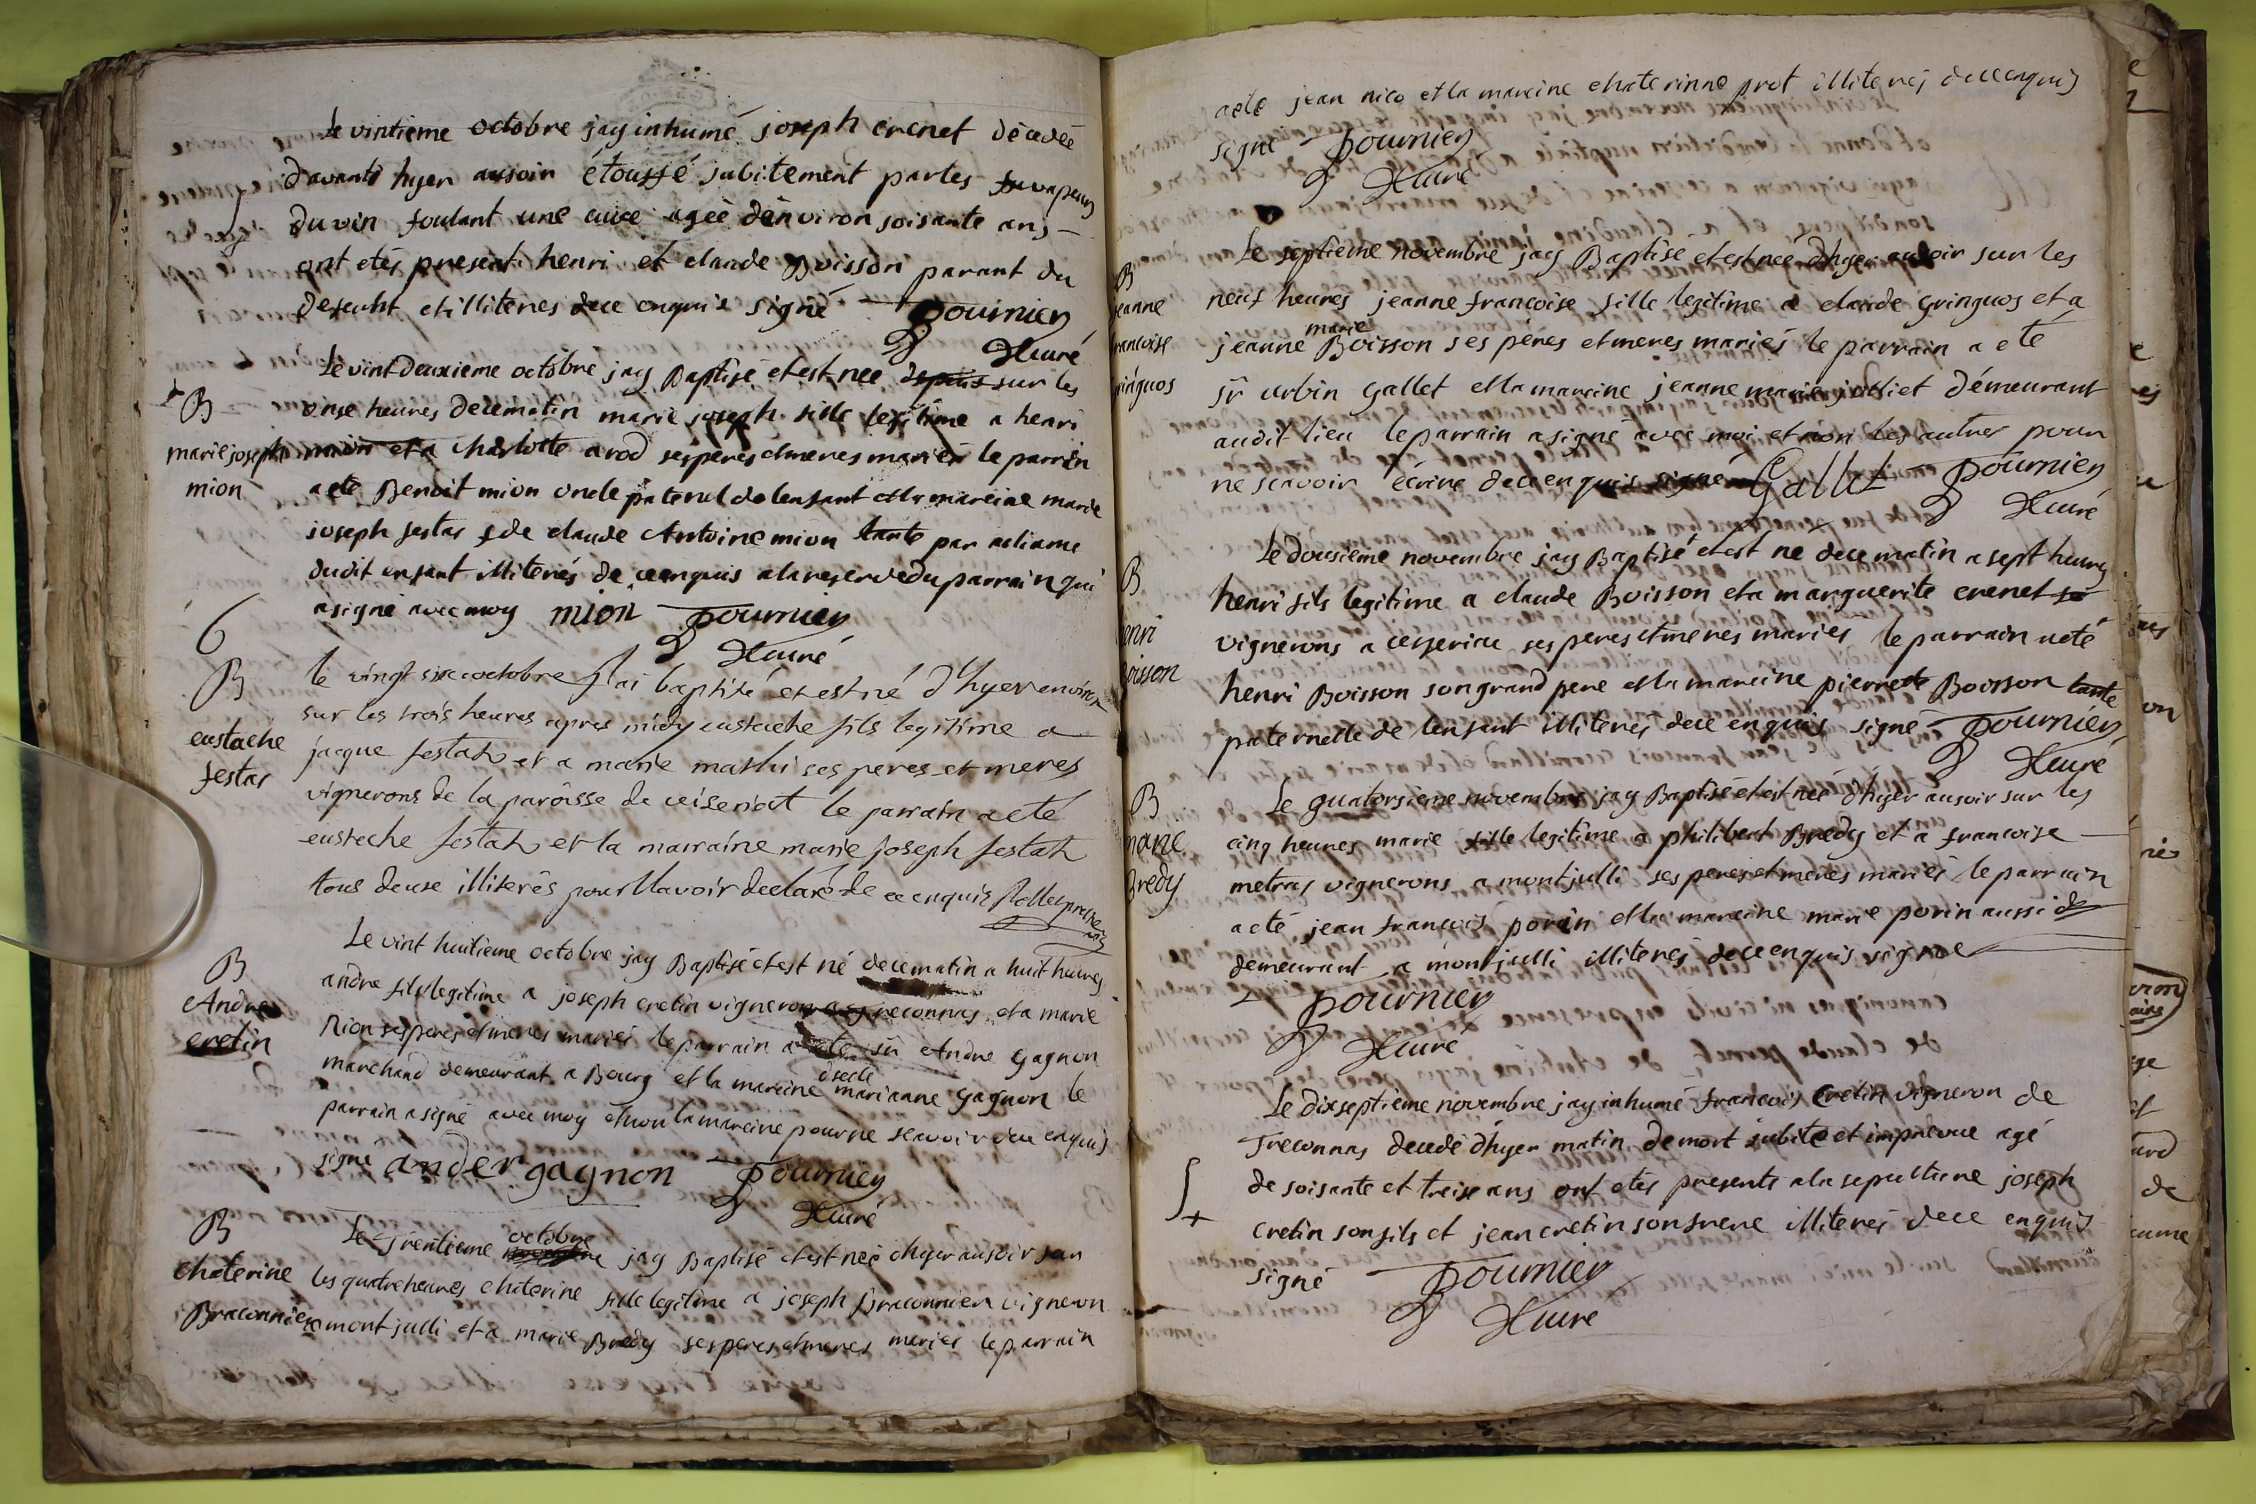 Le vintieme octobre jay inhumé joseph crenet dècedée
davants hyer ausoir étouffé subitement par les vapeurs
du vin foulant une cuve ageé d'environ soisante ans
ont etés present henri et claude Boisson parant du
defeunt et illiterés de ce enquis signé Fournier
Curé
Le vint deuxieme octobre jay Baptisé et est nee depuis sur les
onse heures de ce matin marie joseph fille legitime a henri
mion et a charlotte arod ses pères et meres mariés le parrin
a eté Benoit mion oncle paternel de lenfant et la mareine marie
joseph festas f de claude Antoine mion tante par aliame
dudit enfant illiterés de ce enquis a la reserve du parrain qui
a signé avec moy mion Fournier
Curé
B
marie joseph
mion
6
le vingt six octobre j'ai baptisé et est né d'hyer environ
sur les trois heures apres midy eustache fils legitime a
jacque festat et a marie mathi ses peres et meres
vignerons de la paroisse de ceiseriat le parrain a eté
eusteche festat et la marraine marie joseph festat
tous deuse illiterés pour llavoir declaré de ce enquis
B
eustache
festas
Le vint huitieme octobre jay Baptisé et est né de ce matin a huit heures
andre fils legitime a joseph cretin vigneron a treconnas et a marie
Nion ses peres et meres mariés le parrain a eté sr Andre gagnon
marchand demeurant a Bourg et la mareine dselle marianne gagnon le
parrain a signé avec moy et non la mareine pour ne scavoir de ce enquis
signé ander gagnon Fournier
Curé
B
Andre
cretin
Le trentieme octobre jay Baptisé et est neé dhyer ausoir sur
les quatre heures chaterine fille legitime a joseph Braconnier vigneron
a mont julli et a marie Bredy ses peres et meres mariés le parrain
B
chaterine
Braconnier
aeté jean nico et la mareine chaterinne prot illiterés de ce enquis
signé Fournier
Curé
Le septieme novembre jay Baptisé et est neé d'hyer ausoir sur les
neuf heures jeanne francoise fille legitime a claude gringuos et a
jeanne marie Boisson ses pères et meres mariés le parrain a eté
sr urbin gallet et la mareine jeanne marie joliet démeurant
audit lieu le parrain a signé avec moi et non les autres pour
ne scavoir écrire de ce enquis signé Gallet Fournier
Curé
B
jeanne
francoise
gringuos
Le dousieme novembre jay Baptisé et est né de ce matin a sept heures
henri fils legitime a claude Boisson et a marguerite crenet
vignerons a ceyseriac ses peres et meres mariés le parrain a eté
henri Boisson son grand pere et la mareine pierrete Boisson tante
paternelle de lenfant illiterés de ce enquis signé Fournier
Curé
B
henri
Boisson
Le quatorsieme novembre jay Baptisé et est neé d'hyer ausoir sur les
cinq heures marie fille legitime a philibert Bredy et a francoise
metras vignerons a montjulli ses peres et meres mariés le parrain
a eté jean francois porin et la mareine marie porin aussi
demeurant a montjulli illiterés de ce enquis signoe
Fournier
Curé
B
marie
Bredy
Le dixseptieme novembre jay inhumé francois Cretin vigneron de
Treconnas decedé d'hyer matin de mort subite et imprevue agé
de soisante et treise ans ont etés presents a la sepulture joseph
cretin son fils et jean cretin son frere illiterés de ce enquis
signé Fournier
Curé